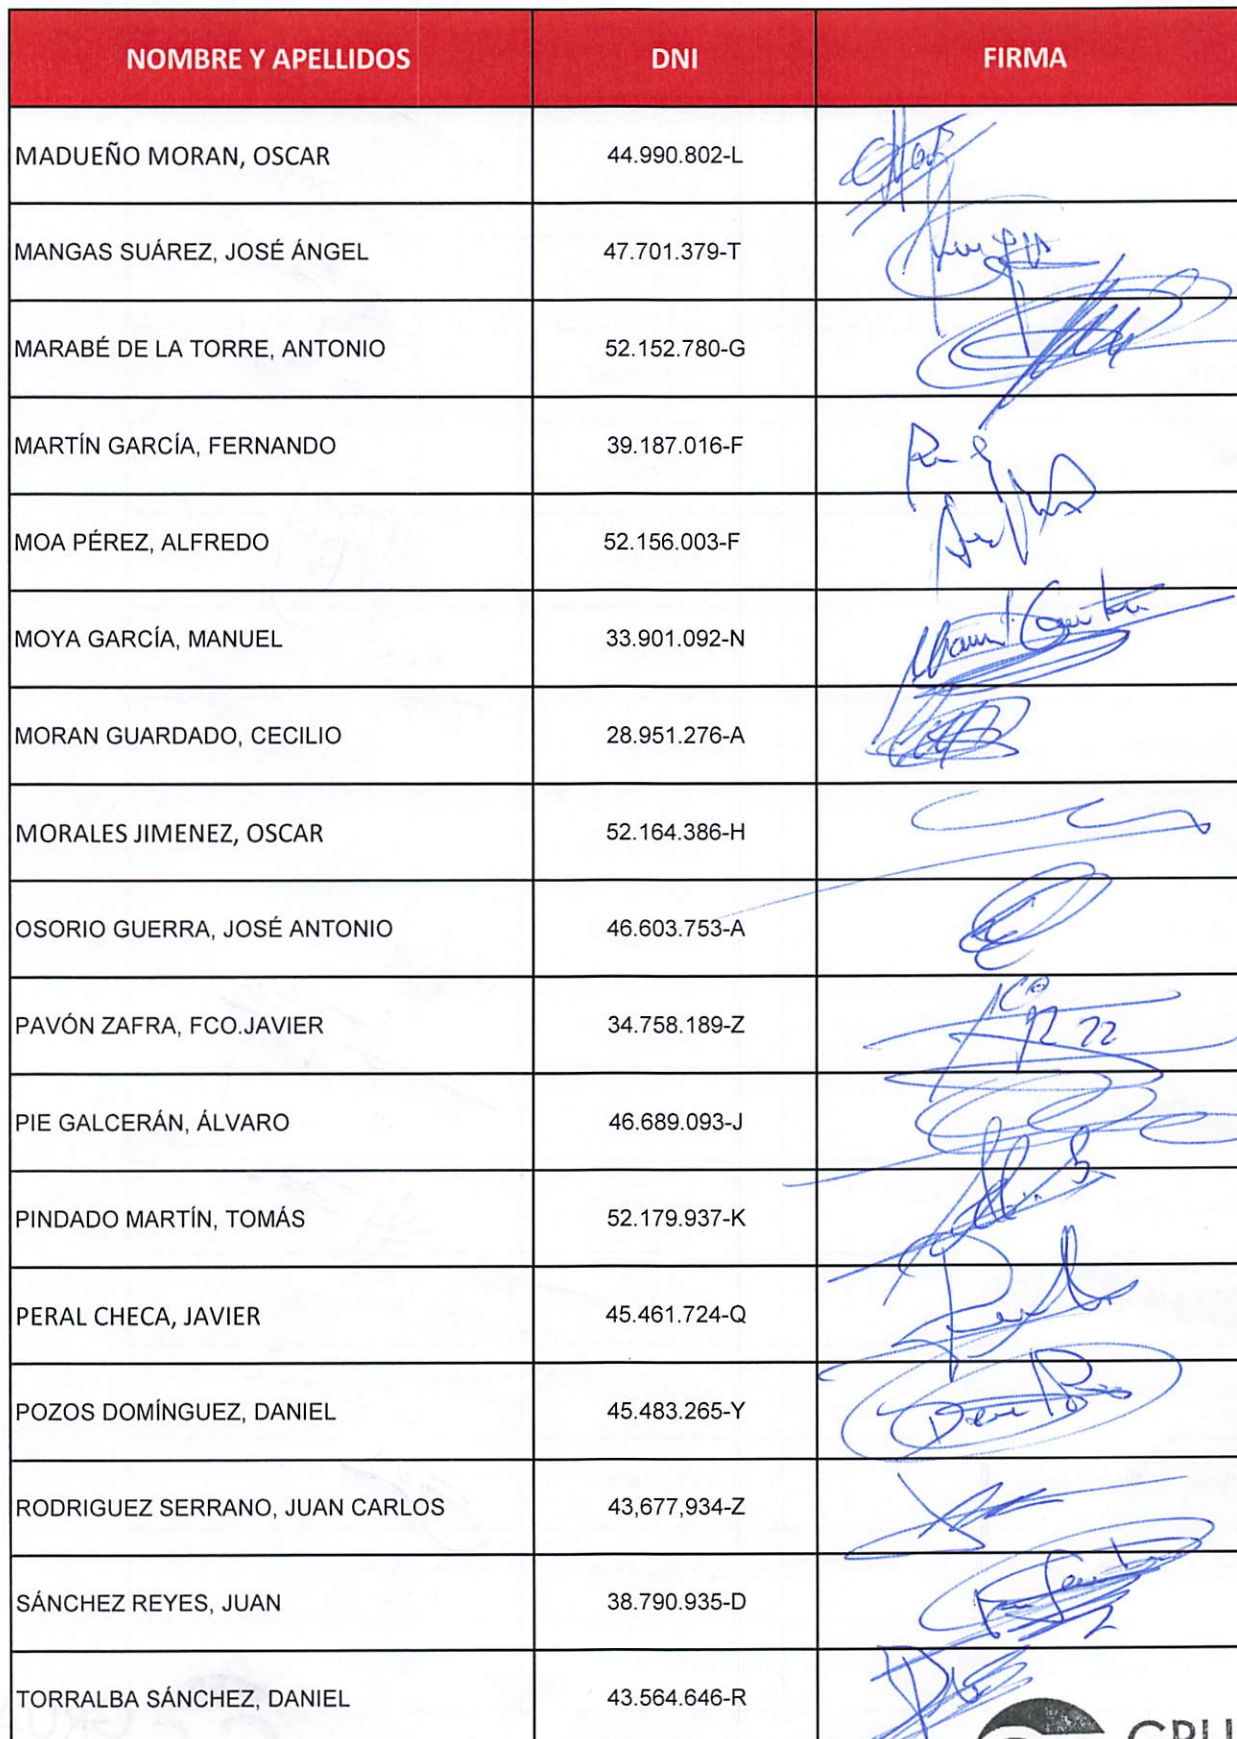 NOMBRE Y APELLIDOS DNI FIRMA
MADUEÑO MORAN, OSCAR 44.990.802-L
MANGAS SUÁREZ, JOSÉ ÁNGEL 47.701.379-T
MARABÉ DE LA TORRE, ANTONIO 52.152.780-G
MARTÍN GARCÍA, FERNANDO 39.187.016-F
MOA PÉREZ, ALFREDO 52.156.003-F
MOYA GARCÍA, MANUEL 33.901.092-N
MORAN GUARDADO, CECILIO 28.951.276-A
MORALES JIMENEZ, OSCAR 52.164.386-H
OSORIO GUERRA, JOSÉ ANTONIO 46.603.753-A
PAVÓN ZAFRA, FCO.JAVIER 34.758.189-Z
PIE GALCERÁN, ÁLVARO 46.689.093-J
PINDADO MARTÍN, TOMÁS 52.179.937-K
PERAL CHECA, JAVIER 45.461.724-Q
POZOS DOMÍNGUEZ, DANIEL 45.483.265-Y
RODRIGUEZ SERRANO, JUAN CARLOS 43,677,934-Z
SÁNCHEZ REYES, JUAN 38.790.935-D
TORRALBA SÁNCHEZ, DANIEL 43.564.646-R